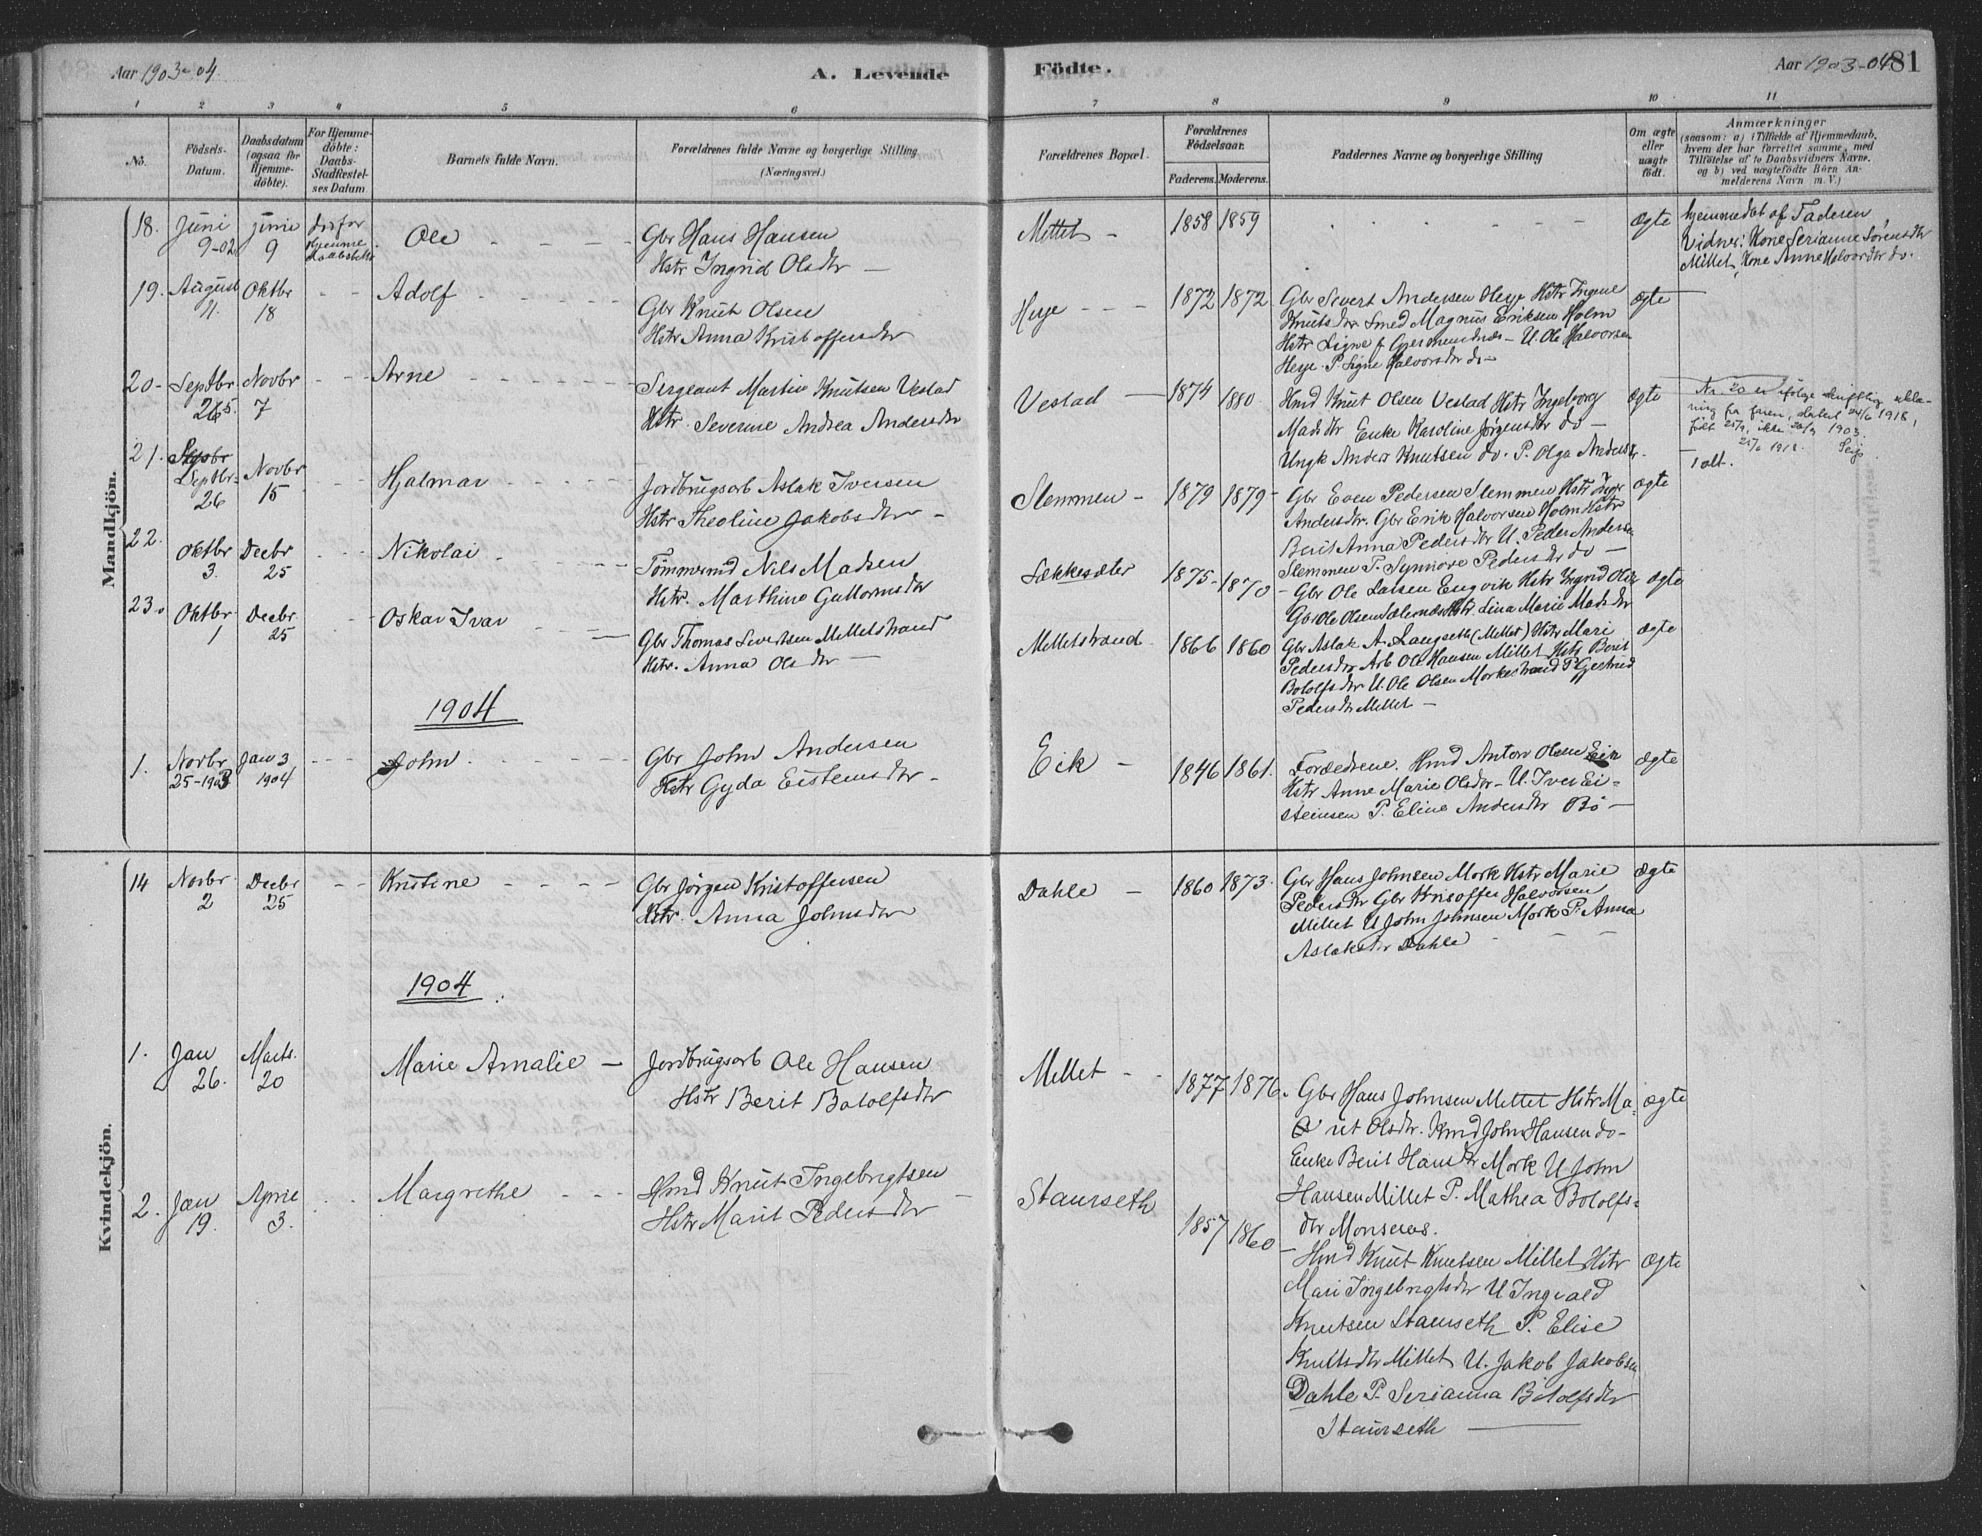 Aar 1903-04.
A. Levende
Födte.
Aar 1903-04
81
1 2 3 4 5 6 7 8 9 10 11
No.
Födsels-
Datum.
Daabsdatum
(ogsaa for
Hjemme-
döbte).
For Hjemme-
döbte:
Daabs-
Stadfæstel-
ses Datum
Barnets fulde Navn.
Forældrenes fulde Navne og borgerlige Stilling
(Næringsvei.)
Forældrenes Bopæl.
Forældrenes
Födselsaar.
Faderens. Moderens.
Faddernes Navne og borgerlige Stilling
Om ægte
eller
uægte
födt.
Anmærkninger
(saasom: a) i Tilfælde af Hjemmedaab,
hvem der har forrettet samme, med
Tilföielse af to Daabsvidners Navne.
og b) ved uægtefödte Börn An-
melderens Navn m. V.)
Mandkjön.
18. Juni
9-02
junie
9
Ole
Gbr Hans Hansen
Hstr Ingrid Olsdtr
Mittet
1858 1859
ægte
hjemmedöbt af Faderen
Vidner: Kone Serianne Sörensdtr
Mittet, Kone Anne Halvorsdtr do.
19. August
Oktbr
18
Adolf
Gbr Knut Olsen
Hstr Anna Kristoffersdtr
Heye
1872 1872
Gbr Severt Andersen Heye Hstr Ingene
Knutsdtr Smed Magnus Eriksen Holm
Hstr Signe U. Ole Halvorsen
Heye P. Signe Halvorsdtr do
ægte
20 Septbr
Novbr
7
Arne
Sergeant Martin Knutsen Vestad
Hstr. Severine Andrea Andersdtr
Vestad
1874 1880
Hmd Knut Olsen Vestad Hstr Ingeborg
Madsdtr Enke Karoline Jørgensdtr do
Ungk Anders Knutsen do. P. Olga Andersdtr.
ægte
Nr. 20 er ifölge skriftlig erklæ-
ring fra faren, datert 24/6 1918,
födt 25/9, ikke 26/9 1903.
25/6 1918.
1 alt.
21. Septbr
26
Novbr
15
Hjalmar
Jordbrugsarb Aslak Iversen
Hstr Theoline Jakobsdtr
Slemmen
1879 1879
Gbr Even Pedersen Slemmen Hstr
Andersdtr. Gbr Erik Halvorsen Holm Hstr
Berit Anna Pedersdtr U. Peder Andersen
Slemmen P. Synnöve Pedersdtr do
ægte
22. Oktbr
3.
Decbr
25
Nikolai
Tømmermd Nils Madsen
Hstr. Marthine Guttormsdtr
Sækkesæter
1875 1870
Gbr Ole Larsen Engvik Hstr Ingrid Olsdtr
Gbr Ole Olsen Sælsnæs Hstr. Lina Marie Madsdtr
ægte
23. Oktbr
1
Decbr
25
Oskar Ivar
Gbr Thomas Severtsen Mittetstrand
Hstr. Anna Olsdtr
Mittetstrand
1866 1860
Gbr Aslak A. Langseth (Mittet) Hstr Mari
Pedersdtr Arb Ole Hansen Mittet Hstr Berit
Botolfsdtr U. Ole Olsen Morkestrand P. Gjertrud
Pedersdtr Mittet
ægte
1904
1. Novbr
25-1903
Jan 3
1904
John
Gbr John Andersen
Hstr Gyda Eistensdtr
Eik
1846 1861.
Forældrene. Hmd Anton Olsen Eik
Hstr Anne Marie Olsdtr U. Iver Ei-
steinsen P. Eline Andersdtr Bö
ægte
Kvindekjön.
14 Novbr
2
Decbr
25
Kristine
Gbr Jörgen Kristoffersen
Hstr. Anna Johnsdtr
Dahle
1860 1873
Gbr Hans Johnsen Mork Hstr Marie
Pedersdtr Gbr Kristoffer Halvorsen
Mittet U John Johnsen Mork P. Anna
Aslaksdtr Dahle
ægte
1904
1. Jan
26.
Marts.
20
Marie Amalie
Jordbrugsarb Ole Hansen
Hstr Berit Botolfsdtr
Mittet
1877 1876
Gbr Hans Johnsen Mittet Hstr Ma-
rit Olsdtr. Kmd John Hansen do
Enke Berit Hansdtr Mork U John
Hansen Mittet P. Mathea Botolfs-
dtr Monsenes.
ægte
2. Jan
19.
April
3.
Margrethe
Hmd Knut Ingebrigtsen
Hstr Marit Pedersdtr
Staurseth
1857 1860
Hmd Knut Knutsen Mittet Hstr
Mari Ingebrigtsdtr U Ingvald
Knutsen Staurseth P. Elise
Knutsdtr Mittet U. Jakob Jakobsen
Dahle P. Serianna Botolfsdtr
Staurseth
ægte